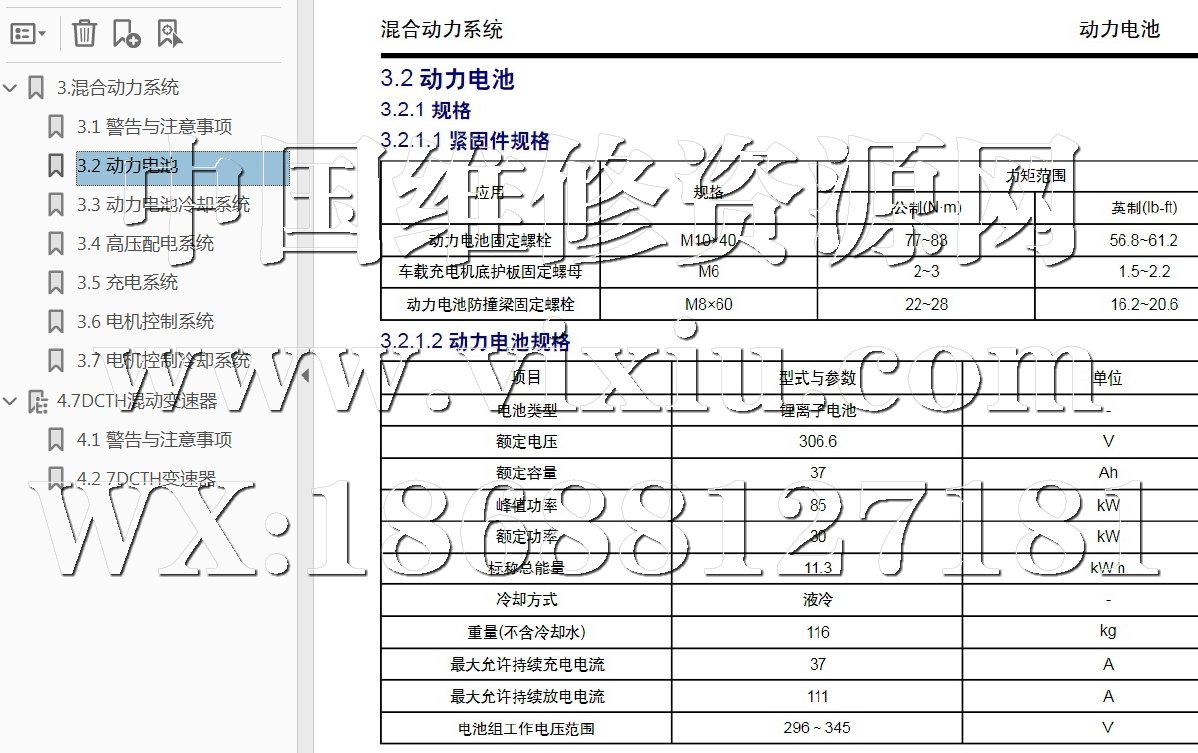 3.混合动力系统
3.1 警告与注意事项
3.2 动力电池
3.3 动力电池冷却系统
3.4 高压配电系统
3.5 充电系统
3.6 电机控制系统
3.7 电机控制冷却系统
4.7DCTH混动变速器
4.1 警告与注意事项
4.2 7DCTH变速器
混合动力系统 动力电池
3.2 动力电池
3.2.1 规格
3.2.1.1 紧固件规格
应用 规格 力矩范围
公制(N·m) 英制(lb-ft)
动力电池固定螺栓 M10×40 77~83 56.8~61.2
车载充电机底护板固定螺母 M6 2~3 1.5~2.2
动力电池防撞梁固定螺栓 M8×60 22~28 16.2~20.6
3.2.1.2 动力电池规格
项目 型式与参数 单位
电池类型 锂离子电池 -
额定电压 306.6 V
额定容量 37 Ah
峰值功率 85 kW
额定功率 30 kW
标称总能量 11.3 kW·h
冷却方式 液冷 -
重量(不含冷却水) 116 kg
最大允许持续充电电流 37 A
最大允许持续放电电流 111 A
电池组工作电压范围 296 ~ 345 V
中国维修资源网
www.vixiu.com
WX:18688127181